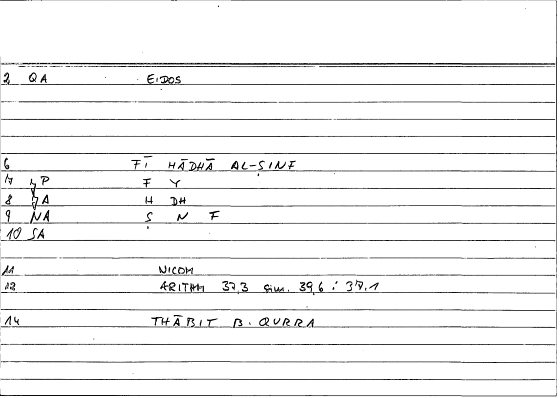 2 QA EIDOS
6 FĪ HĀDHĀ AL-ṢINF
7 P F Y
8 A H DH
9 NA Ṣ N F
10 SA
11 NICOM
12 ARITHM 37,3 sim. 39,6 : 37,1
14 THĀBIT B. QURRA